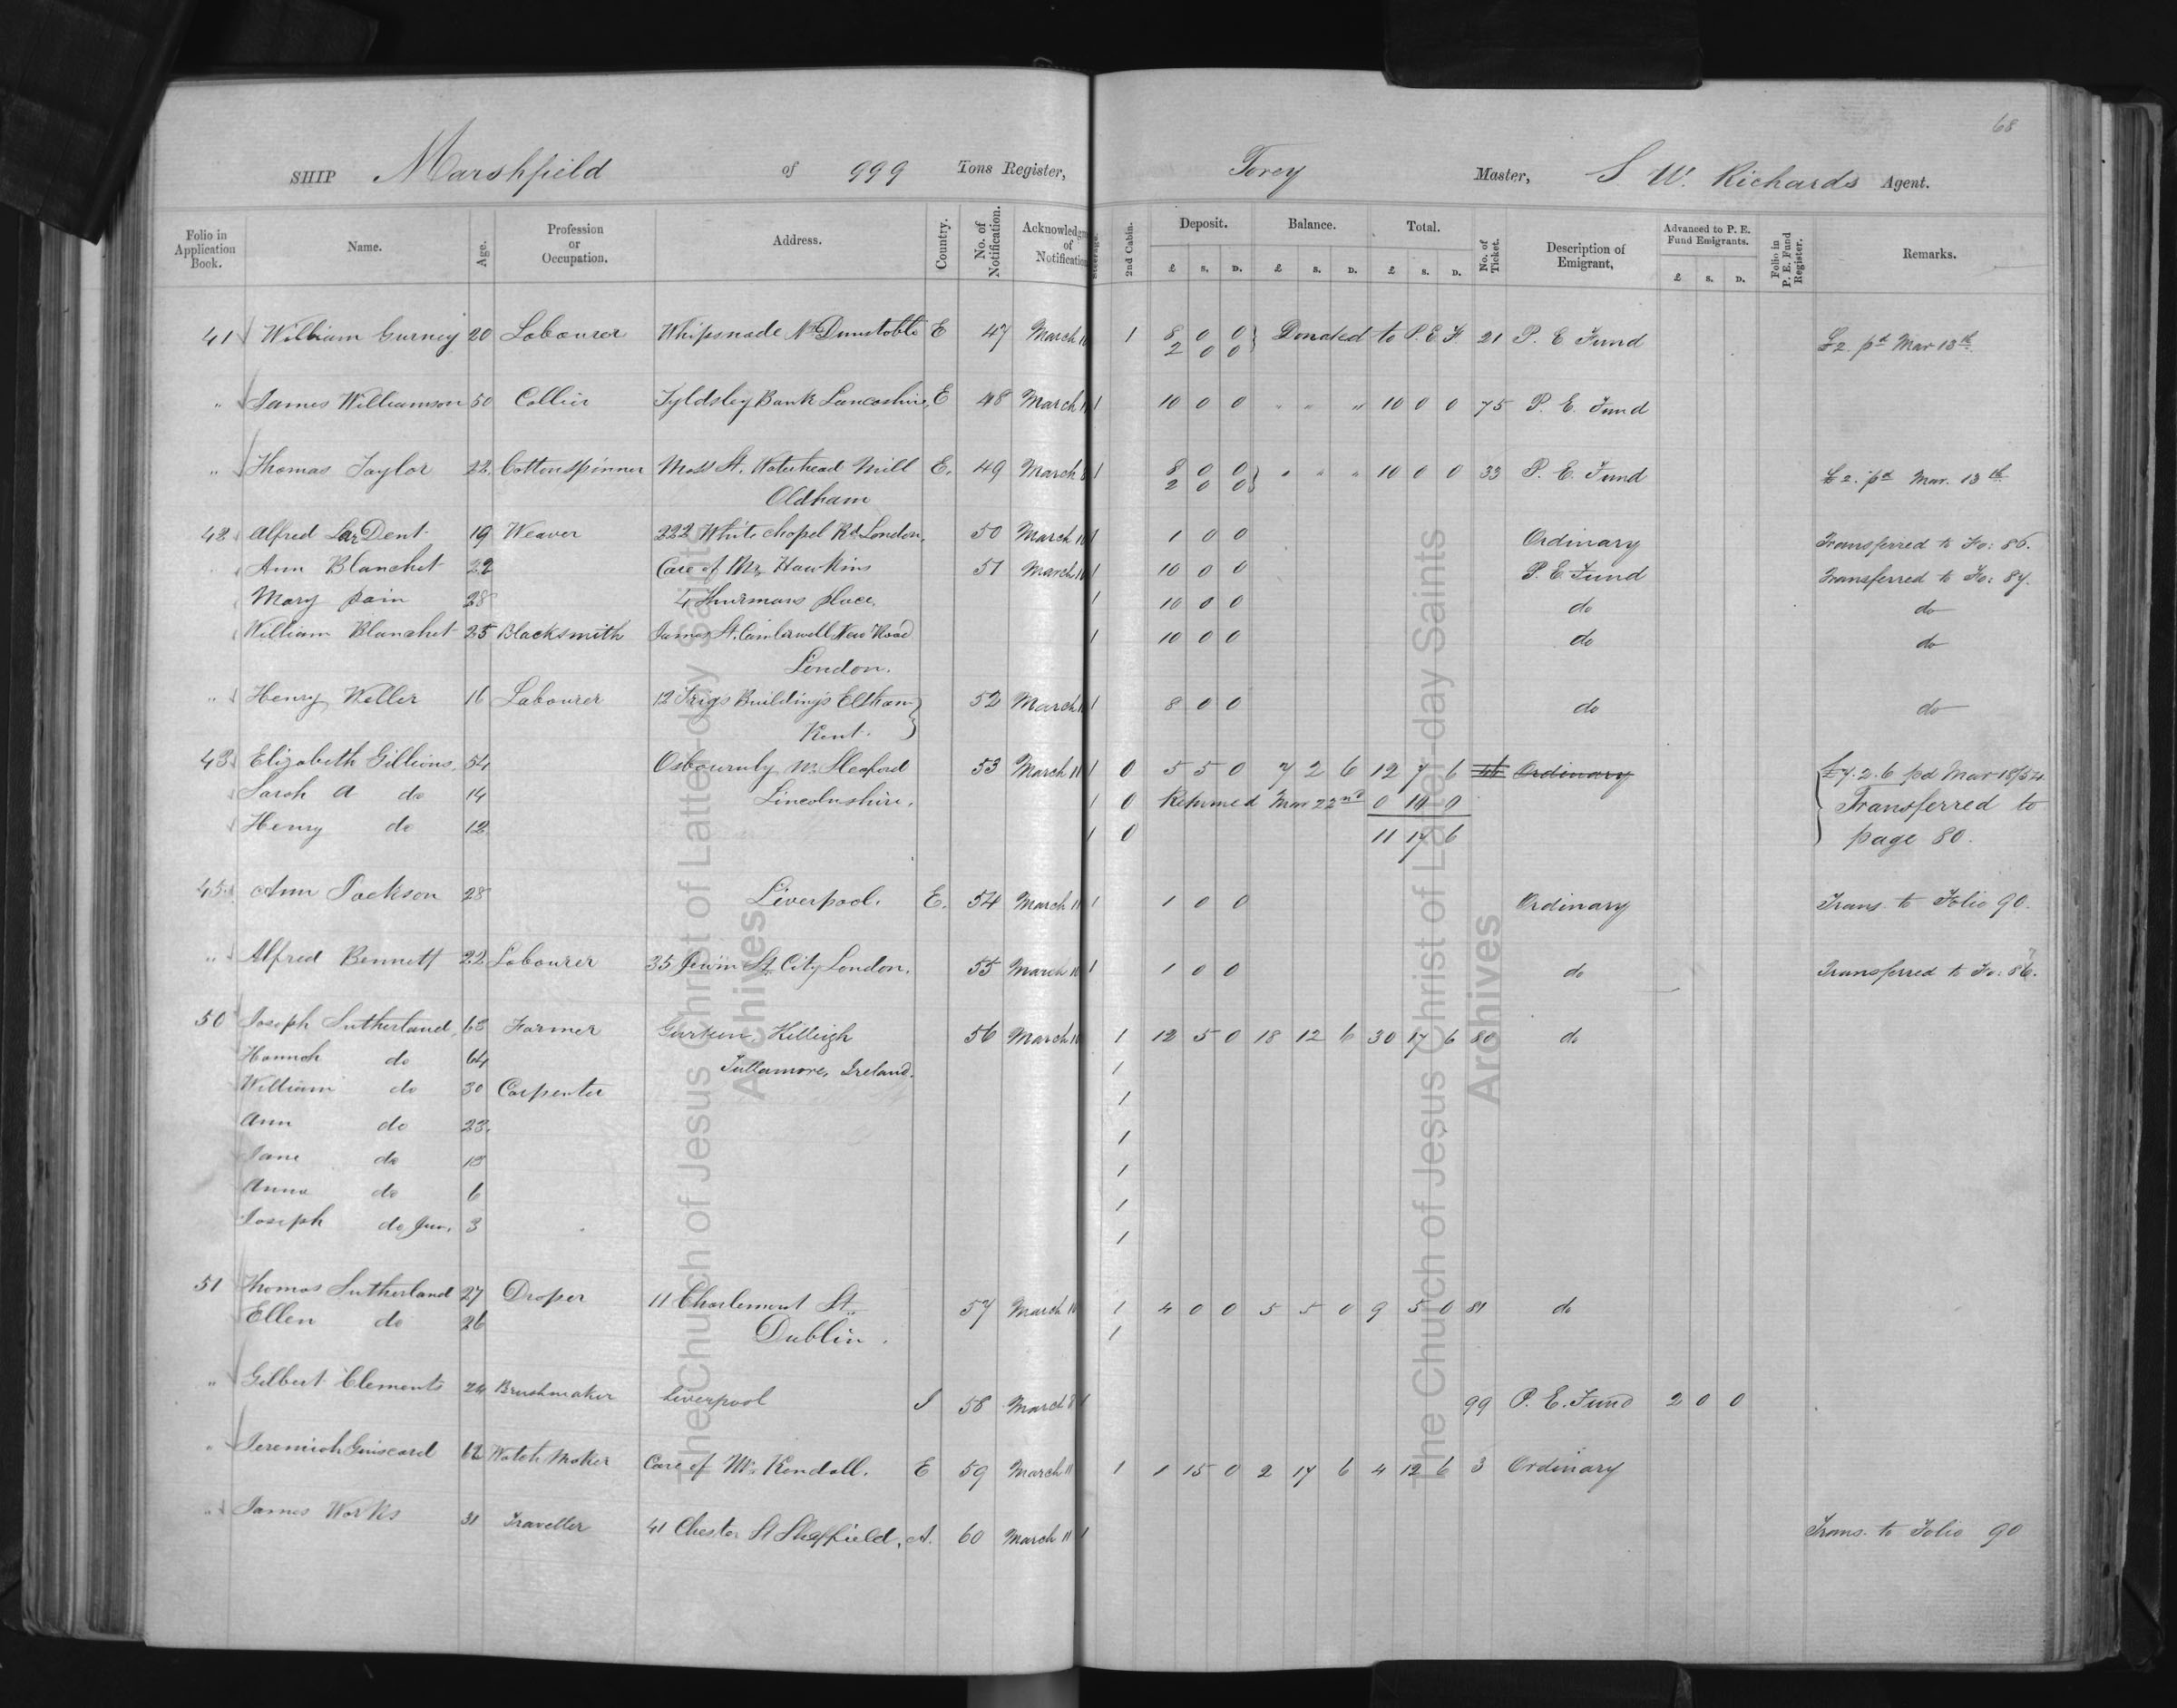 68
SHIP Marshfield of 999 Tons Register, Torey Master, S W. Richards Agent.
Folio in Application Book. Name. Age. Profession or Occupation. Address. Country. No. of Notification. Acknowledg of Notification 2nd Cabin. Deposit. Balance. Total. No. of Ticket. Description of Emigrant, Advanced to P. E. Fund Emigrants. Folio in P. E. Fund Register. Remarks.
£ S. D. £ S. D. £ S. D. £ S. D.
41 William Gurney 20 Labourer Whipsnade Nr Dunstable E 47 March 1 8 0 0 } Donated to P. E. F. 21 P. E Fund £2. pd Mar 13th
2 0 0
" James Williamson 50 Collier Tyldsley Bank Lancashire, E 48 March 1 10 0 0 " " " 10 0 0 75 P. E. Fund
" Thomas Taylor 22 Cotton spinner Moss St. Waterhead Mill E. 49 March 8 1 8 0 0 } " " " 10 0 0 33 P. E. Fund £2. pd Mar. 13th
Oldham 2 0 0
42 Alfred LarDent 19 Weaver 222 White chapel Rd London, 50 March 10 1 1 0 0 Ordinary Transferred to Fo: 86.
Ann Blanchet 22 Care of Mr Hawkins 51 March 10 1 10 0 0 P. E. Fund Transferred to Fo: 87.
Mary Pain 28 4 Thurmans place, 1 10 0 0 do do
William Blanchet 25 Blacksmith James St. Camberwell New Road 1 10 0 0 do do
London.
" Henry Weller 16 Labourer 12 Buildings Eltham } 52 March 1 8 0 0 do do
Kent.
43 Elizabeth Gillions, 54 Osbournby Nr. Sleaford 53 March 11 1 0 5 5 0 7 2 6 12 7 6 Ordinary £7. 2. 6 pd Mar 18/54
Sarah A do 14 Lincolnshire. 1 0 Returned Mar 22nd 0 10 0 Transferred to
Henry do 12 1 0 11 17 6 page 80.
45 Ann Jackson 28 Liverpool. E. 54 March 11 1 1 0 0 Ordinary Trans. to Folio 90.
" Alfred Bennett 22 Labourer 35 Jewin St. City London. 55 March 10 1 1 0 0 do Transferred to Fo: 86.
50 Joseph Sutherland, 63 Farmer Killeigh 56 March 10 1 12 5 0 18 12 6 30 17 6 80 do
Hannah do 64 Tullamore, Ireland. 1
William do 30 Carpenter 1
Ann do 23. 1
Jane do 1
Anna do 6 1
Joseph do Jun. 3 1
51 Thomas Sutherland 27 Draper 11 Charlemont St. 57 March 10 1 4 0 0 5 5 0 9 5 0 81 do
Ellen do 26 Dublin. 1
" Gilbert Clements 24 Brushmaker Liverpool S 58 March 8 1 99 P. E. Fund 2 0 0
" Jeremiah 62 Watch Maker Care of Mr Kendall. E 59 March 11 1 1 15 0 2 17 6 4 12 6 3 Ordinary
" James Works 31 Traveller 41 Chester St Sheffield, A. 60 March 11 1 Trans. to Folio 90
The Church of Jesus Christ of Latter-day Saints
Archives
The Church of Jesus Christ of Latter-day Saints
Archives